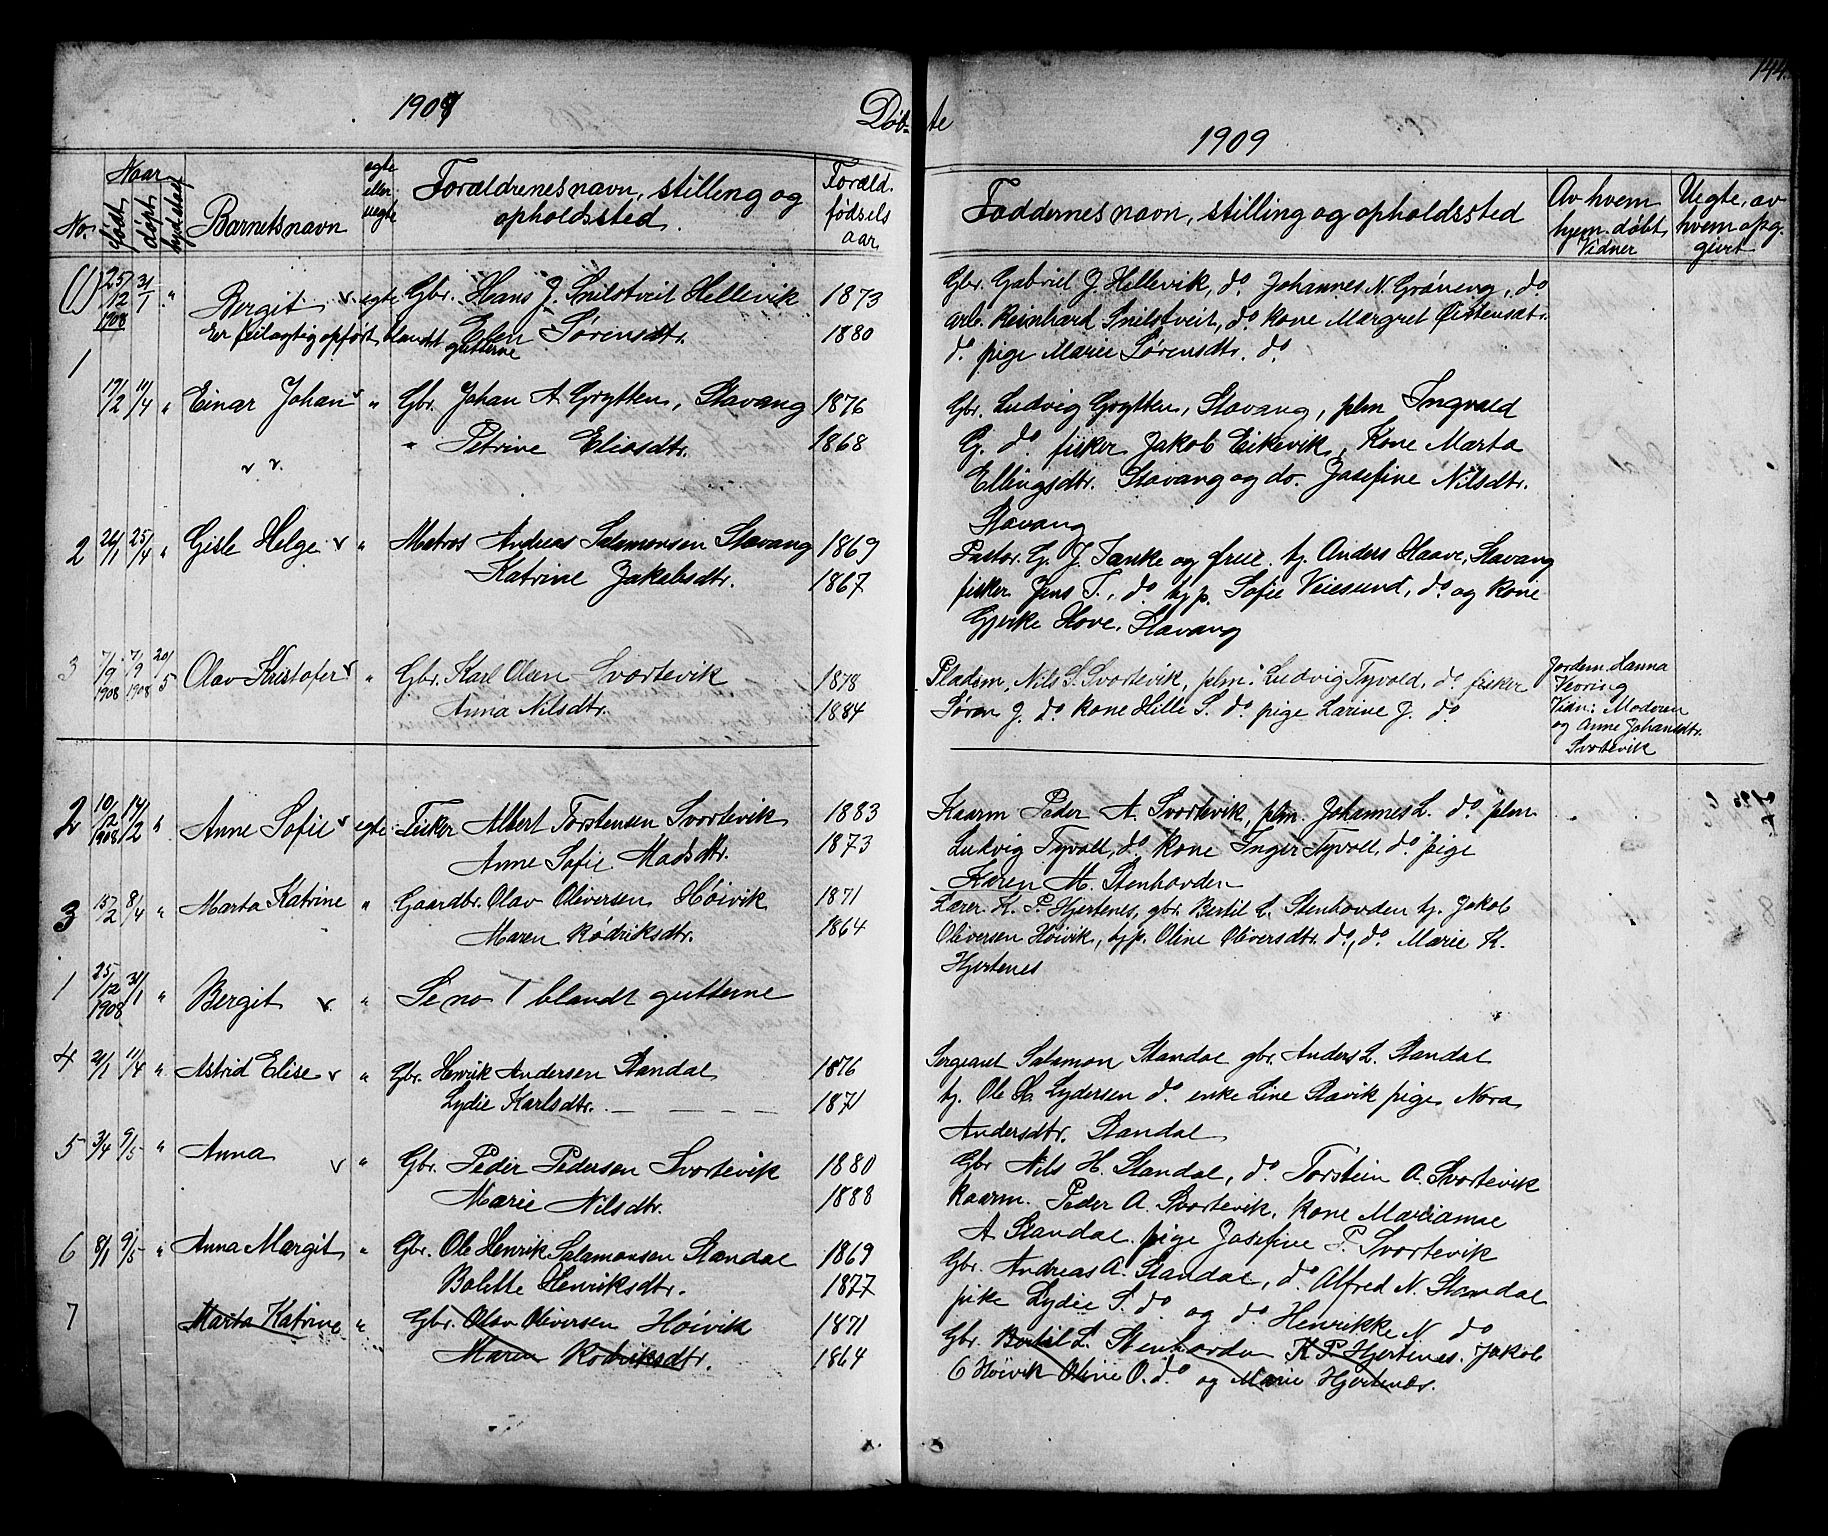 144.
1909
Døb- te
1909
No.
Naar
født
døpt
Barnets navn
egte eller uegte
Forældrenes navn, stilling og opholdssted.
Foræld. fødsels aar
Faddernes navn, stilling og opholdssted
Av hvem hjem. døbt, Vidner
Uegte, av hvem opg. givet
(1) 25/12 1908 31/1 " Bergit v. egte Gbr. Hans J. Snilstveit Hellevik 1873
Er feilagtig opført blandt gutterne Elen Sørensdtr. 1880
Gbr. Gabriel J. Hellevik, do. Johannes N. Grøneng, do.
arb. Reinhard Snilstveit, do. kone Margret Øistensdt.
do. pige Marie Sørensdtr. do
1 17/2 11/4 " Einar Johan v " Gbr. Johan A. Grytten, Stavang 1876
" Petrine Eliasdtr. 1868
v v.
Gbr. Ludvig Grytten, Stavang, plm Ingvald
G. do. fisker Jakob Eikevik, Kone Marta
Ellingsdtr. Stavang og do. Josefine Nilsdtr.
Stavang
2 26/1 25/4 " Gisle Helge v " Matros Andreas Salamonsen Stavang 1869
Katrine Jakobsdtr. 1867
Pastor G. J. Tanke og frue. tj. Anders Haave, Stavang
fisker Jens T., do tjp. Sofie Veiesund, do. og kone
Gjerke Hove, Stavang
3 7/9 1908 7/9 1908 20/5 Olav Kristofer v " Gbr. Karl Olsen Svortevik 1878
Anna Nilsdtr. 1884
Pladsm, Nils S. Svortevik, plm. Ludvig Tyvold, do. fisker
Søren J. do. kone Hille S. do. pige Larine J. do
Jordem. Hanna
Veoring
Vidn: Moderen
og Anne Johansdtr.
Svortevik
2 10/12 1908 14/2 " Anne Sofie v egte Fisker Albert Torstensen Svortevik 1883
Anne Sofie Madsdtr. 1873
Kaarm Peder A. Svortevik, plm. Johannes L. do plm.
Ludvig Tyvoll, do. kone Inger Tyvoll, do. pige
Karen M. Stenhovden
3 15/2 8/4 " Marta Katrine " Gaardbr. Olav Oliversen Høivik 1871
Maren Rødriksdtr. 1864
Lærer K. P. Hjertenes, gbr. Bertil L. Stenhovden tj. Jakob
Oliversen Høivik, tjp. Oline Oliversdtr. do, do. Marie K.
Hjertenes
1 25/12 1908 31/1 " Bergit v. " Se no 1 blandt gutterne
4 21/1 11/4 " Astrid Elise v " Gbr. Henrik Andersen Standal 1876
Lydie Karlsdtr. — — — — 1871
Sergeant Salamon Standal gbr. Anders L. Standal
tj. Ole Lydersen do. enke Line Stavik pige Nora
Andersdtr. Standal
5 3/4 9/5 " Anna v " Gbr. Peder Pedersen Svortevik 1880
Marie Nilsdtr. 1888
Gbr Nils H. Standal, do Torstein A. Svortevik
kaarm. Peder A. Svortevik, kone Marianne
A Standal. pige Josefine P. Svortevik
6 8/1 9/5 " Anna Margit " Gbr. Ole Henrik Salamonsen Standal 1869
Bolette Henriksdtr. 1877
Gbr. Andreas A. Standal, do Alfred N. Standal
pike Lydie S. do og do. Henrikke N do
7 Marta Katrine " Gbr. Olav Oliversen Høivik 1871
Maren Rødriksdtr. 1864
Gbr. Bertil L. Stenhovden K P. Hjertenes. Jakob
O Høivik Oline O. do og Marie Hjertenæs.